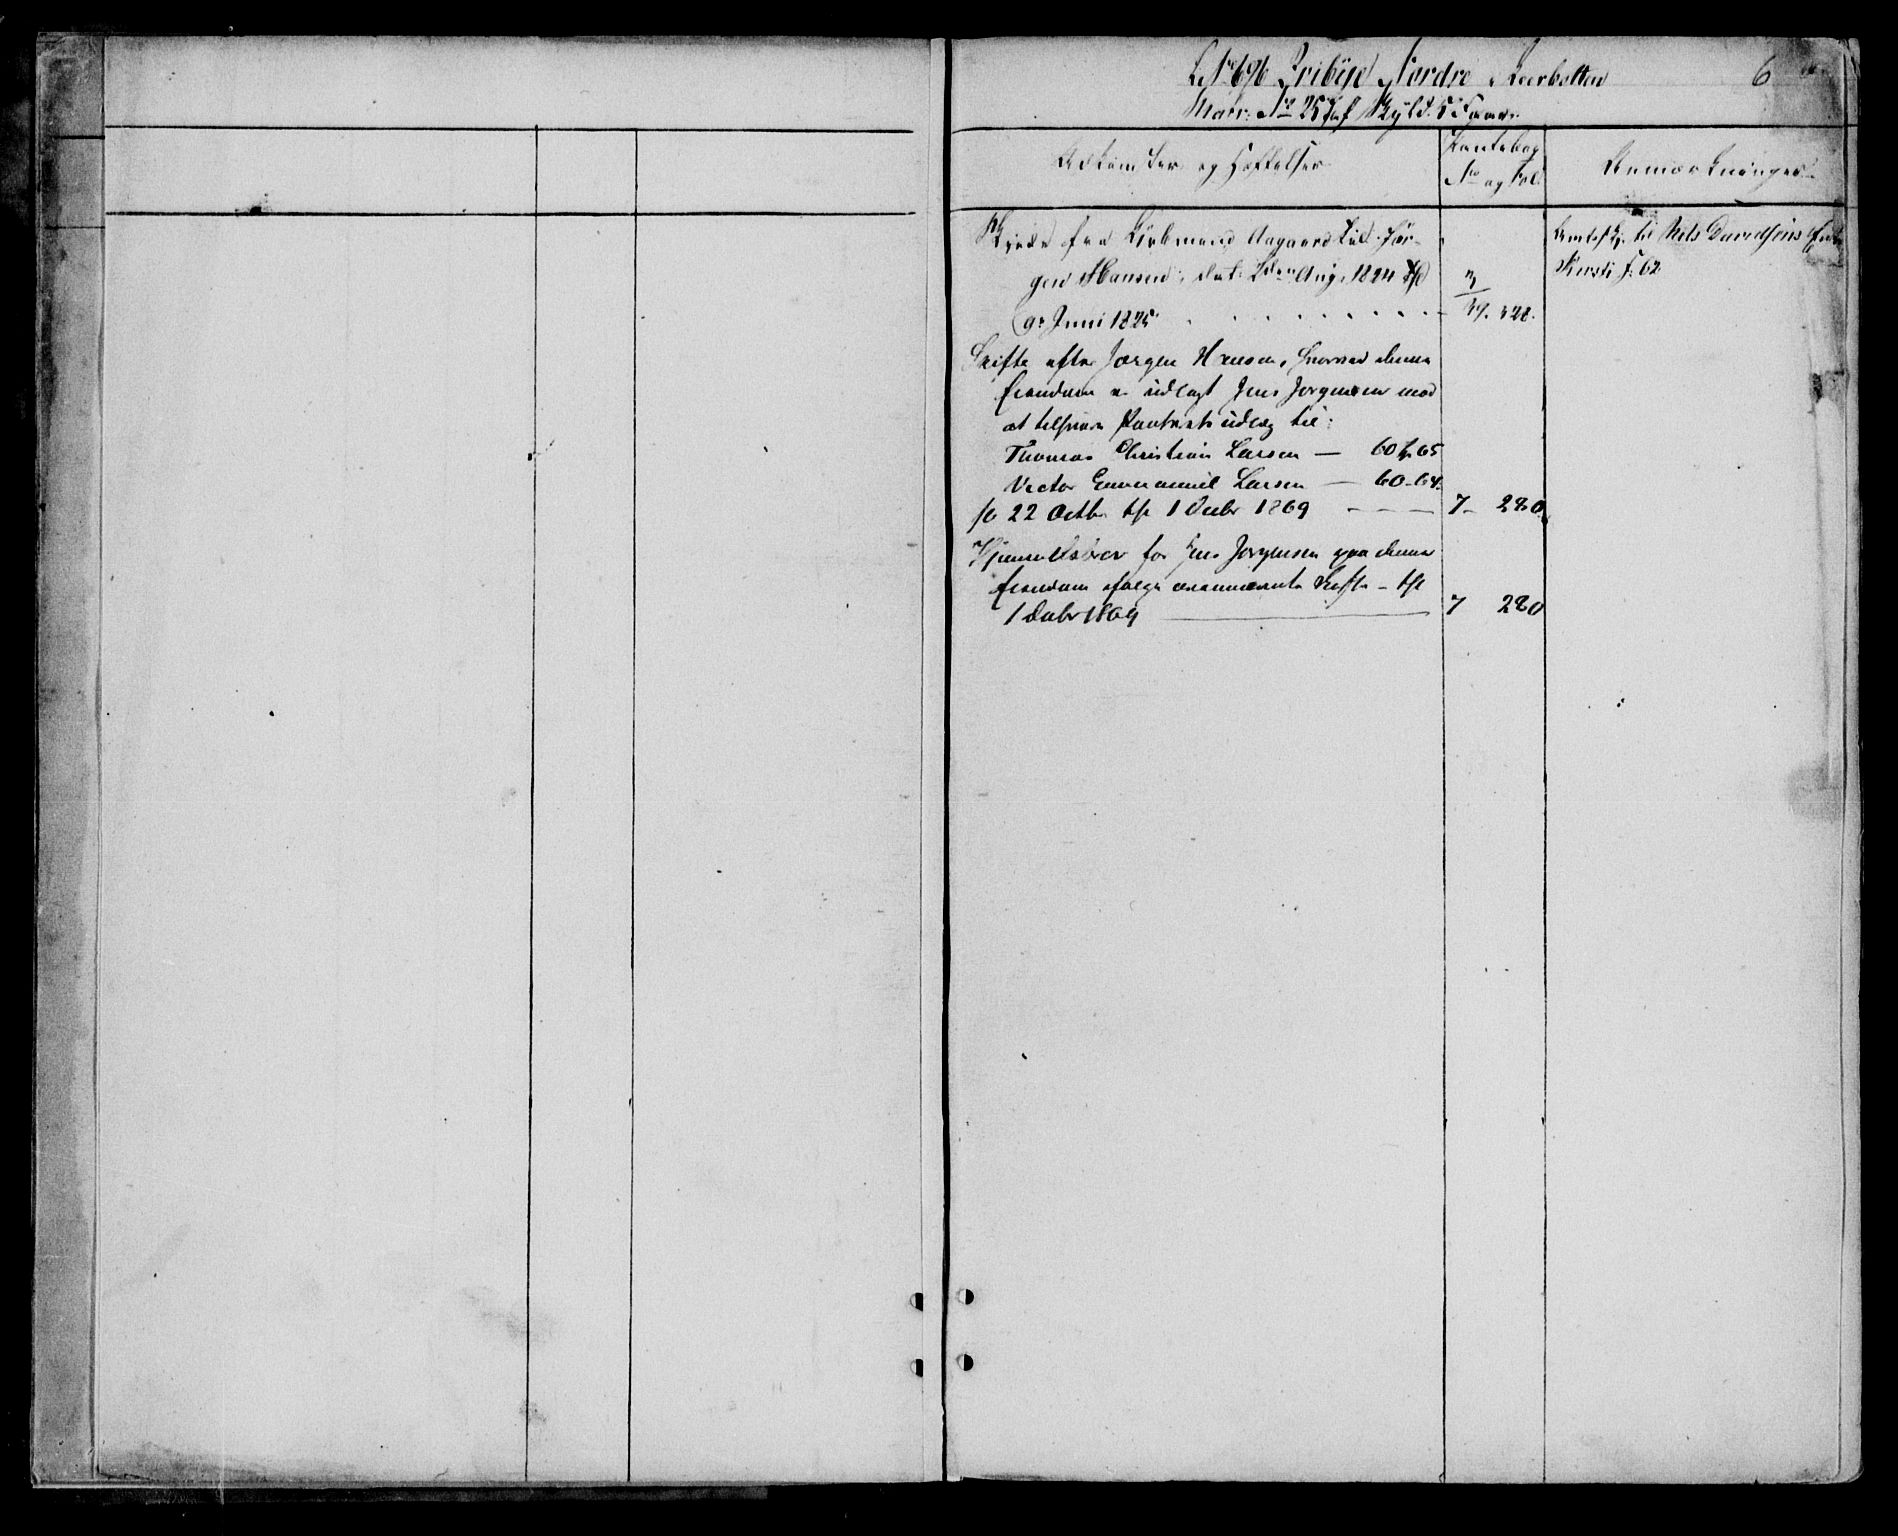 L. No 696 Fribye Nordre Leerbotten 6
Matr: No 257 af Skyld. 5
Adkomster og Hæftelser
Pantebog
No og Fol.
Anmærkninger
Skjøde fra Kiøbmand Aagaard til Jør-
gen Hansen, dat: 2den Aug. 1824 tl
9 Juni 1825
3/39. 328.
til Niels Davidsens Enke
Kirsti f. 62
Skifte efter Jørgen Hansen, hvorved denne
Eiendom er udlagt Jens Jørgensen mod
at tilsvare Panterets udlæg til:
Thomas Christian Larsen — 60 65
Vector Emmanuel Larsen — 60 - 64
22 Octb. tl 1 Decbr 1869 - - - 7 - 280
Hjemmelsbrev for Jens Jørgensen paa denne
Eiendom ifølge ovennævnte Skifte - tl
1 Decbr 1869 — 7 280